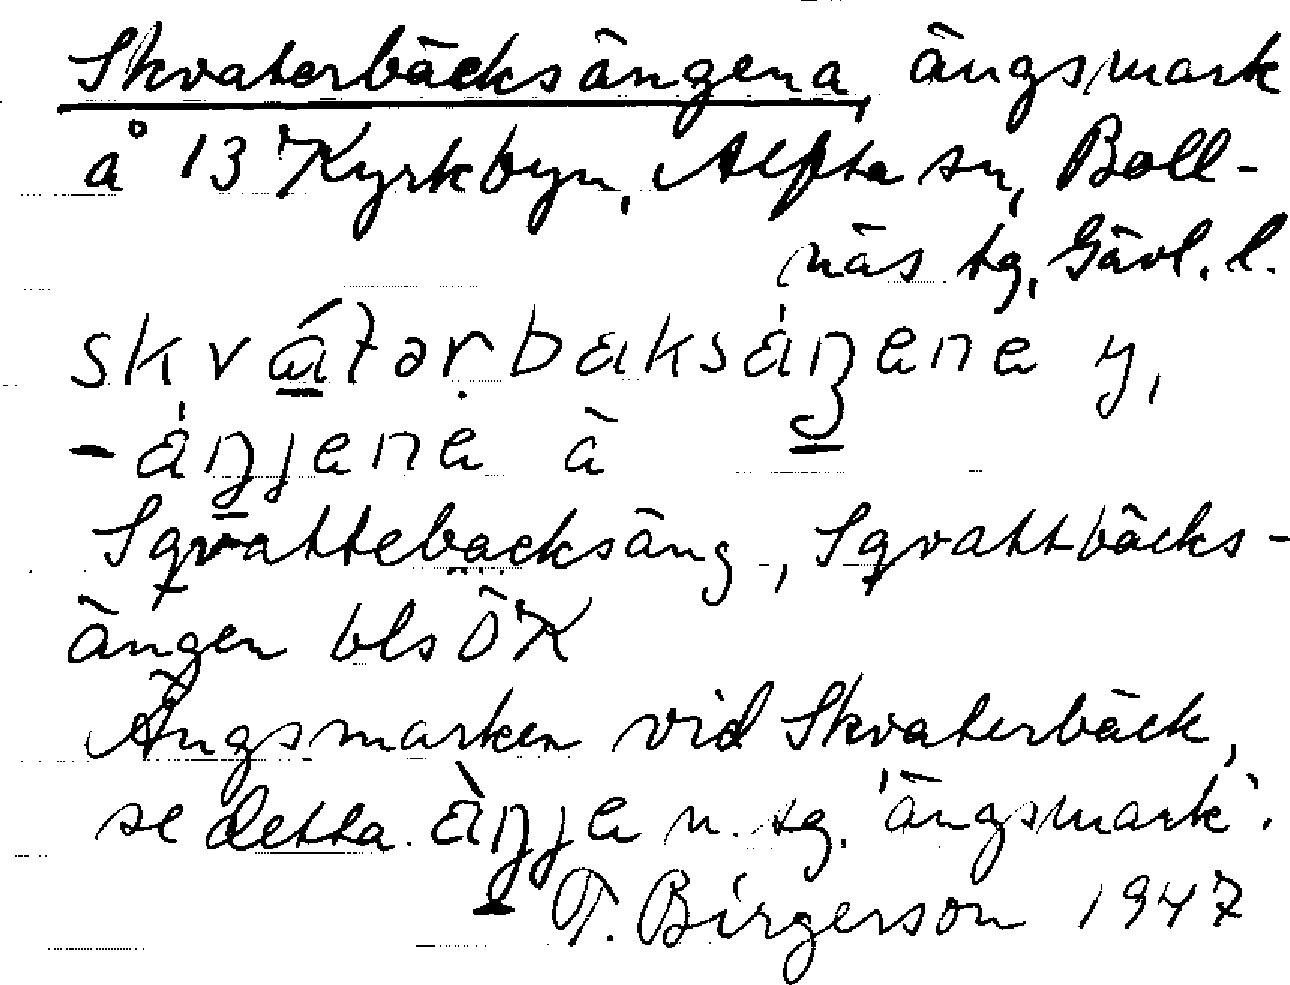 Skvaterbäcksängena, ängsmark
å 13 Kyrkbyn, Alfta sn, Boll-
näs tg, Gävl. l.
skvátərbaksáŋena y,
-áŋjena ä
Sqvattebacksäng, Sqvattbäcks-
ängen bls ÖK
Ängsmarken vid Skvaterbäck,
se detta. àŋja n. tg. 'ängsmark'.
T. Birgerson 1947